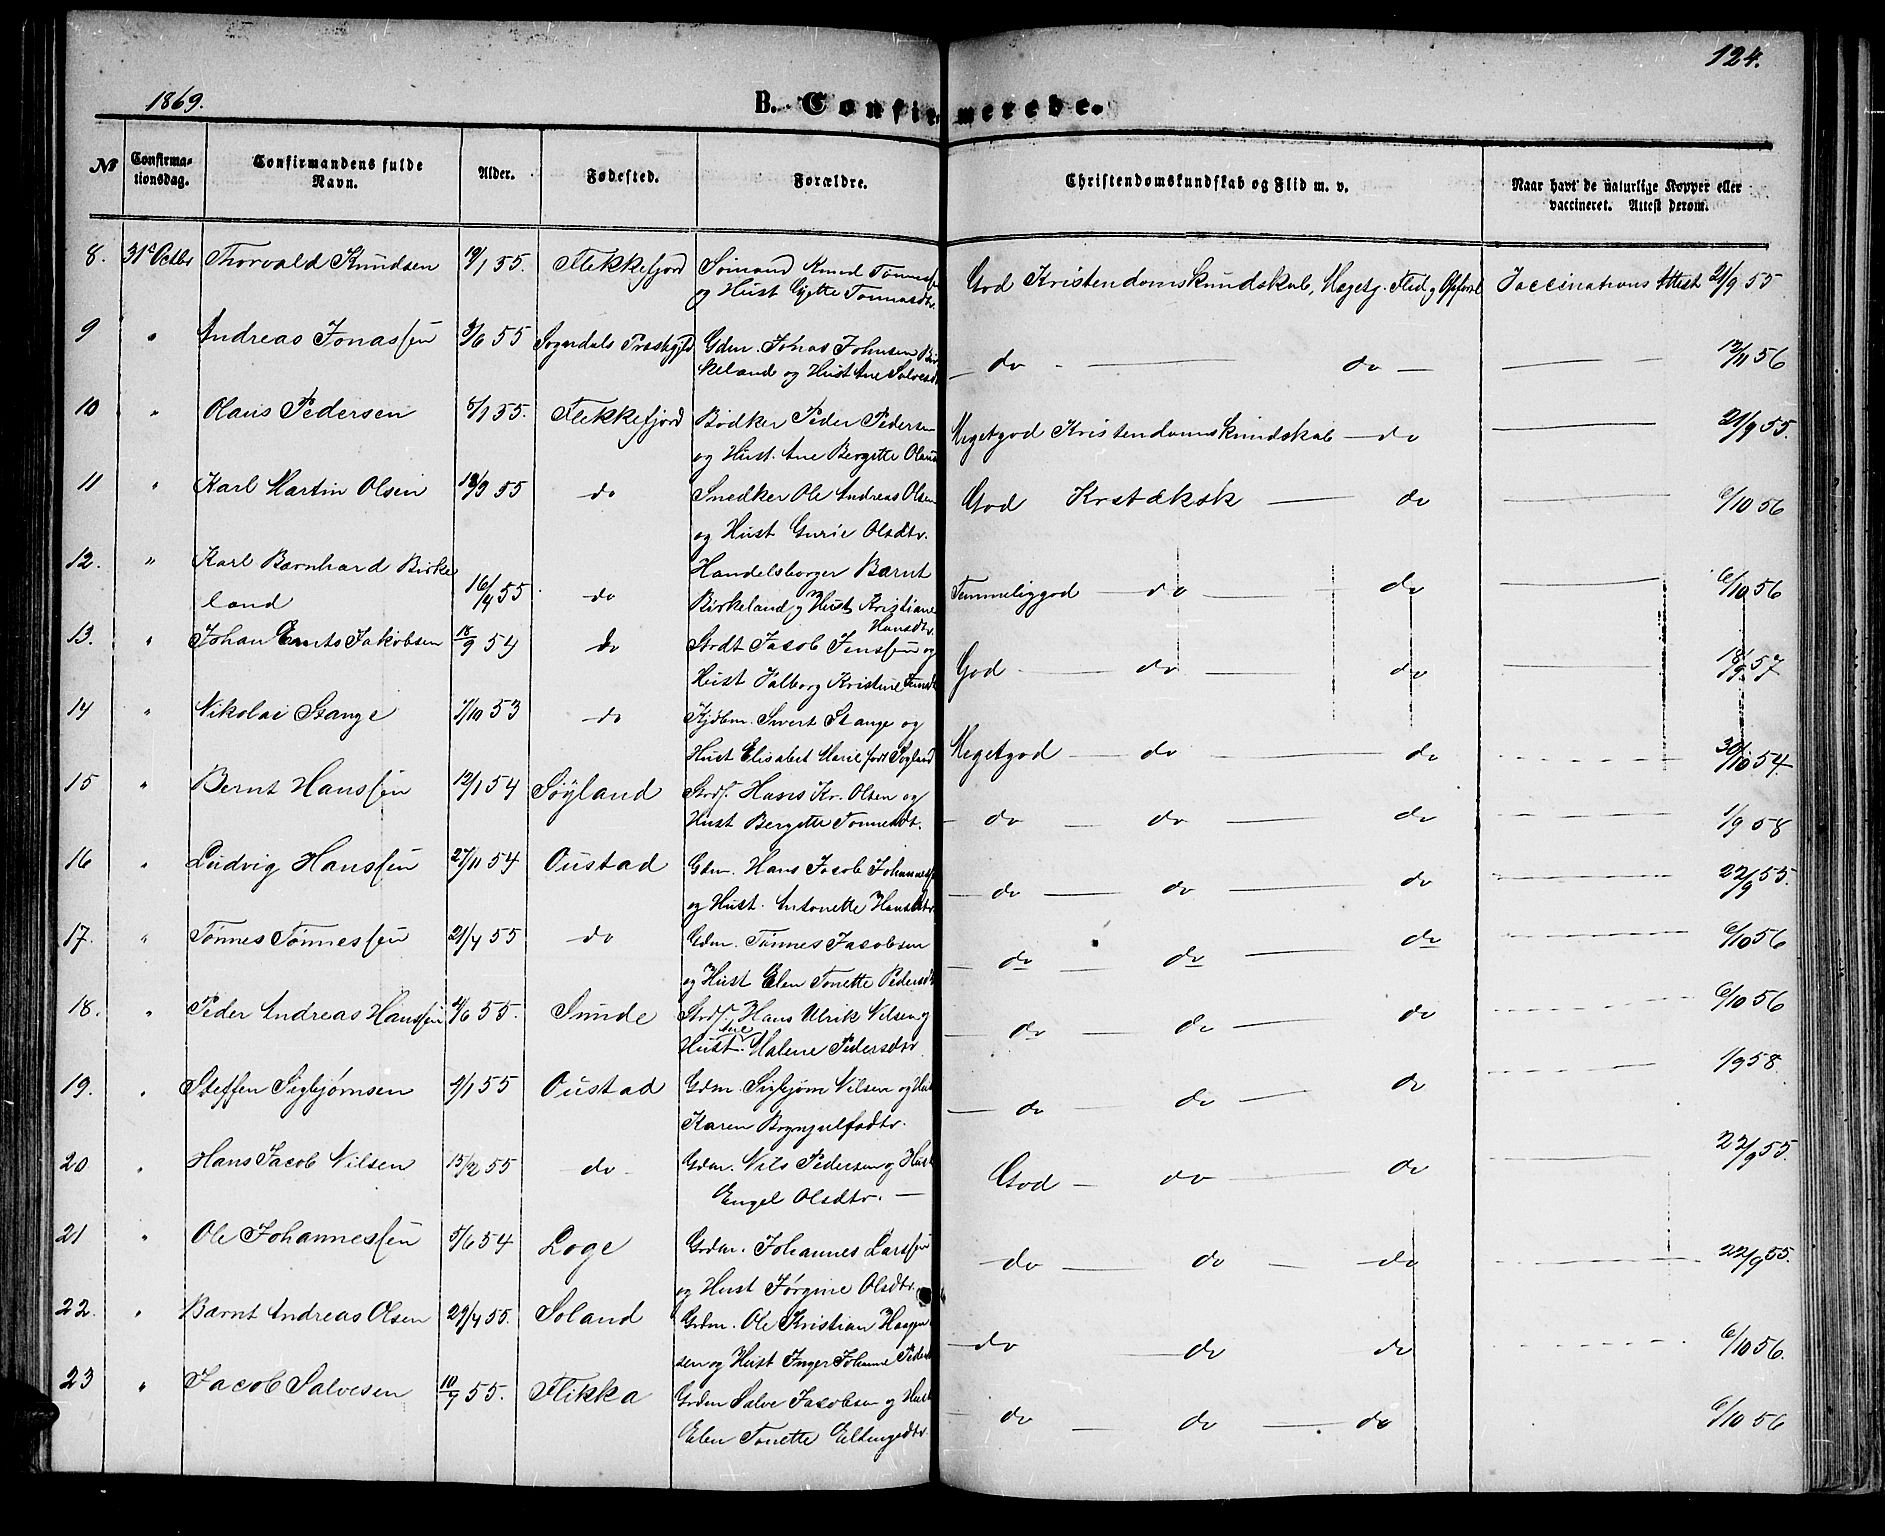 124.
1869.
B. Confirmerede.
№ Confirma-tionsdag. Confirmandens fulde Navn. Alder. Fødested. Forældre. Christendomskundskab og Flid m. v. Naar havt de naturlige Kopper eller vaccineret. Attest derom.
8. 31te Octbr Thorvald Knudsen 19/1 55. Flekkefjord Sømand Knud Tønness
og Hust Gjette Tønnesdtr. God Kristendomskundskab, Meget g. Flid og Opførs Vaccinations Attest 21/9 55
9 " Andreas Jonassen 3/6 55 Sogndals Præstegjeld Gdm. Jonas Johnsen Bir
keland og Hust Ane Salvesdt do do 12/11 56
10 " Olaus Pedersen 8/1 55. Flekkefjord Bødker Peder Pedersen
og Hust. Ane Bergitte Olausd Megetgod Kristendomskundskab do 21/9 55.
11 " Karl Martin Olsen 19/3 55 do Snedker Ole Andreas Olsen
og Hust Gurie Olsdtr. God Krstdksk do 6/10 56
12. " Karl Barnhard Birke
land 16/4 55 do Handelsborger Barnt
Birkeland og Hust Kristiane
Hansdtr. Temmeliggod do do 6/10 56
13. " Johan Ernts Jakobsen 18/9 54 do Strdt Jacob Jenssen og
Hust Valborg Kristine God do do 18/9 57
14 " Nikolai Stange 7/10 53 do Kjøbm. Sivert Stange og
Hust Elisabet Marie født Søyland Megetgod do do 30/10 54
15 " Bernt Hanssen 12/1 54 Søyland Strdf. Hans Kr. Olsen og
Hust Bergitte Tønnesdt. do do do 1/9 58
16 " Ludvig Hanssen 27/11 54 Oustad Gdm. Hans Jacob Johanness
og Hust. Antonette Hansdtr do do do 22/9 55.
17. " Tønnes Tønnessen 21/4 55 do Gdm. Tønnes Jacobsen
og Hust Elen Tonette Pedersdt do do do 6/10 56
18. " Peder Andreas Hanssen 4/6 55. Sunde Strdf. Hans Ulrik Nilsen og
Hust. Ane Malene Pedersdtr do do do 6/10 56
19. " Steffen Sigbjørnsen 4/1 55 Oustad Gdm. Sigbjørn Nilsen og Hust
Karen Brynjulfsdtr. do do do 1/9 58.
20 " Hans Jacob Nilsen 15/2 55 do Gdm. Nils Pedersen og Hust
Engel Olsdtr. God do do 22/9 55.
21 " Ole Johannessen 5/6 54 Loge Grdm. Johannes Larssen
og Hust Jørgine Olsdtr. do do do 22/9 55.
22. " Barnt Andreas Olsen 29/4 55. Soland Grdm. Ole Kristian Haagen
sen og Hust Inger Johanne Peders do do do 6/10 56.
23 " Jacob Salvesen 10/9 55. Flikka Grdm Salve Jacobsen og Hust
Elen Tonette Eltingsdtr. do do do 6/10 56